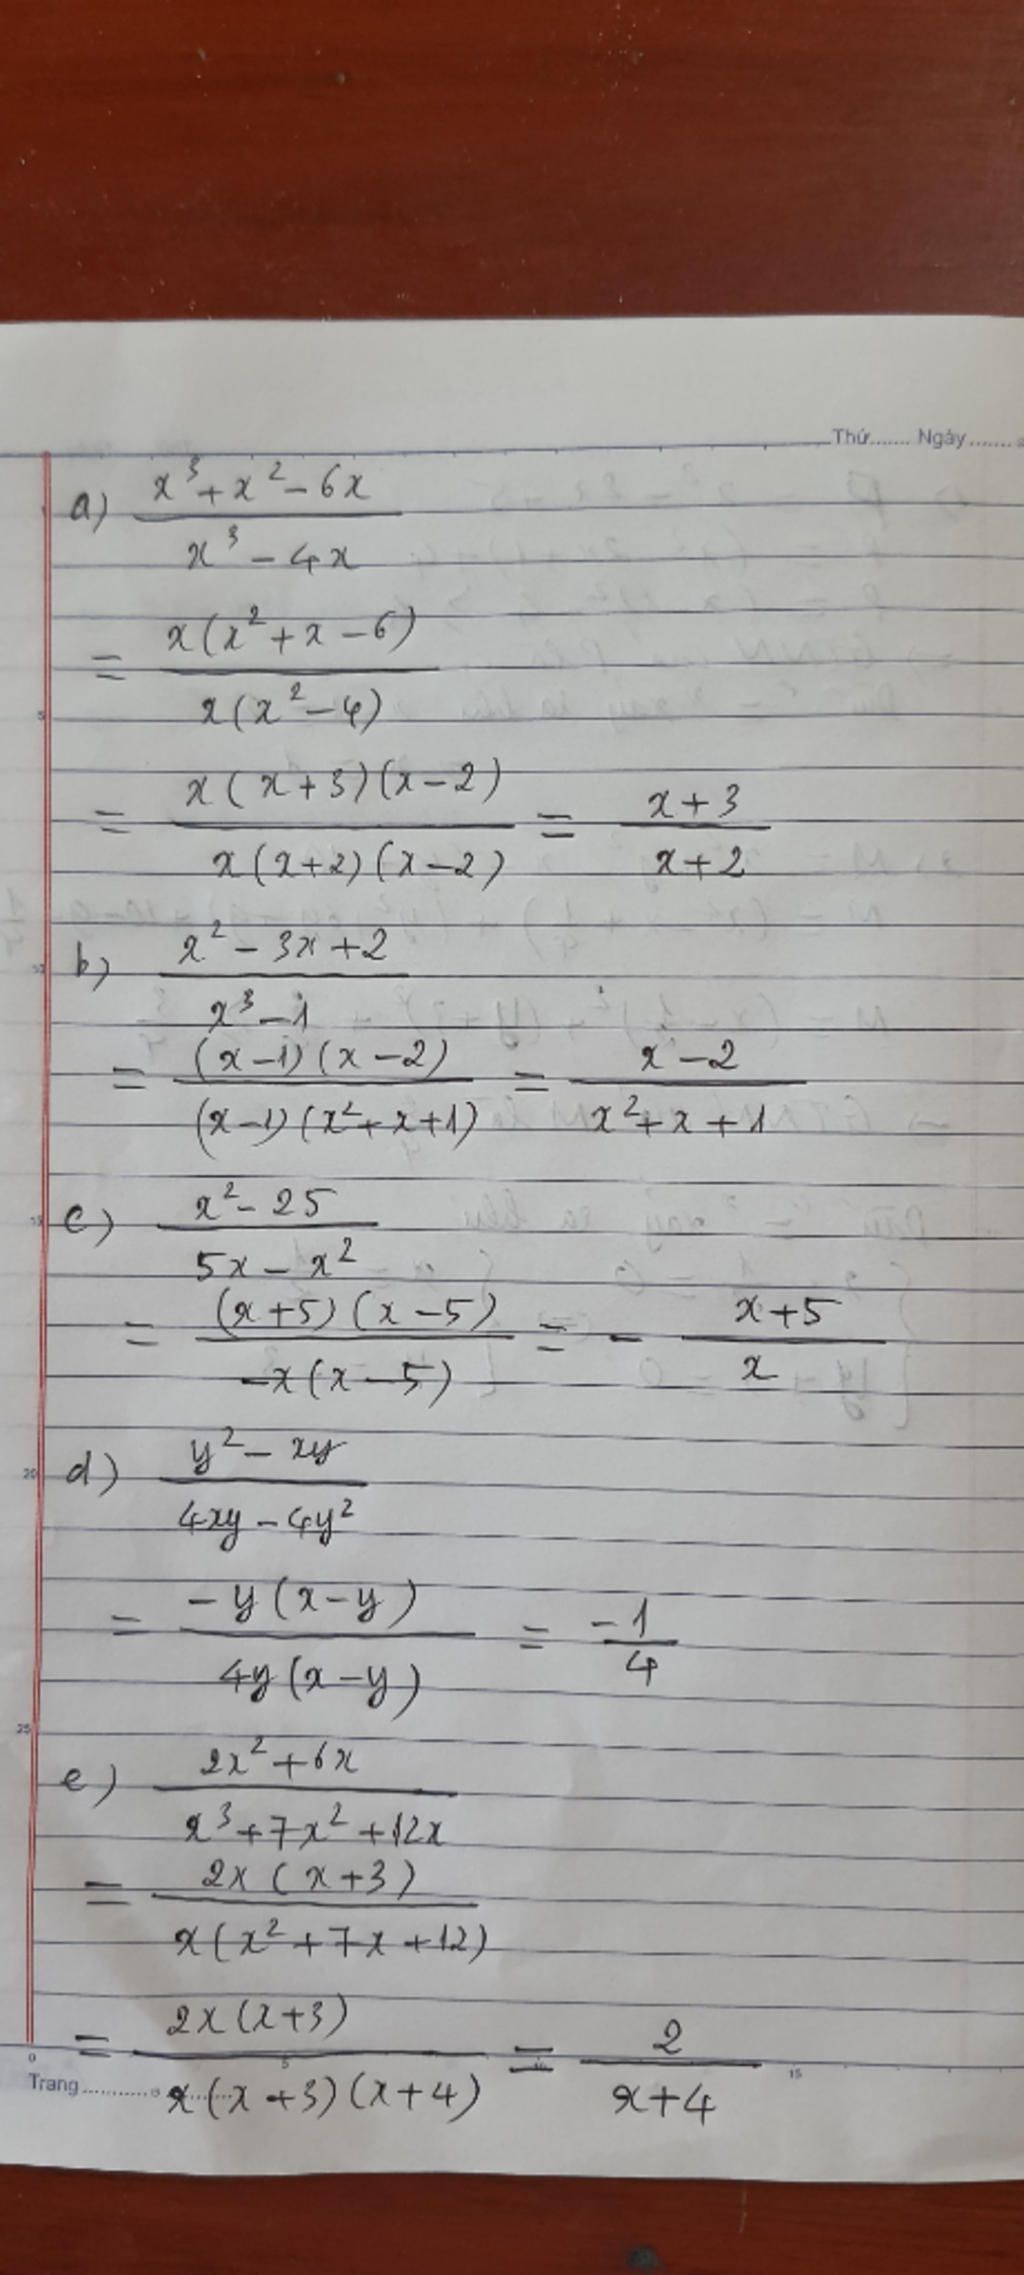 Thứ....... Ngày.......
a) \frac{x^3+x^2-6x}{x^3-4x}
= \frac{x(x^2+x-6)}{x(x^2-4)}
= \frac{x(x+3)(x-2)}{x(x+2)(x-2)} = \frac{x+3}{x+2}
b) \frac{x^2-3x+2}{x^3-1}
= \frac{(x-1)(x-2)}{(x-1)(x^2+x+1)} = \frac{x-2}{x^2+x+1}
c) \frac{x^2-25}{5x-x^2}
= \frac{(x+5)(x-5)}{-x(x-5)} = -\frac{x+5}{x}
d) \frac{y^2-xy}{4xy-4y^2}
= \frac{-y(x-y)}{4y(x-y)} = \frac{-1}{4}
e) \frac{2x^2+6x}{x^3+7x^2+12x}
= \frac{2x(x+3)}{x(x^2+7x+12)}
= \frac{2x(x+3)}{x(x+3)(x+4)} = \frac{2}{x+4}
Trang